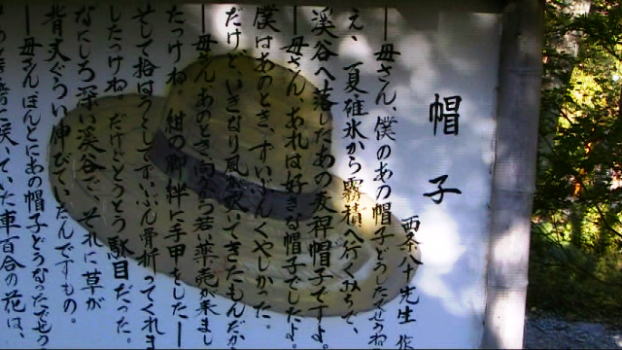 帽子
西条八十先生 作
──母さん、僕のあの帽子どうしたでせうね
え、夏碓氷から霧積へ行くみちで、
渓谷へ落したあの麦稈帽子ですよ。
──母さん、あれは好きな帽子でしたよ。
僕はあのとき、ずいぶんくやしかった。
だけど、いきなり風が吹いてきたもんだから
──母さん、あのとき向から若い薬売が来まし
たっけね。紺の脚絆に手甲をした──
そして拾はうとしてずいぶん骨折ってくれま
したっけね。だけどとうとう駄目だった。
なにしろ深い渓谷で、それに草が
背丈ぐらい伸びていたんですもの。
──母さんほんとにあの帽子どうなったでせう
咲いていた車百合の花は、